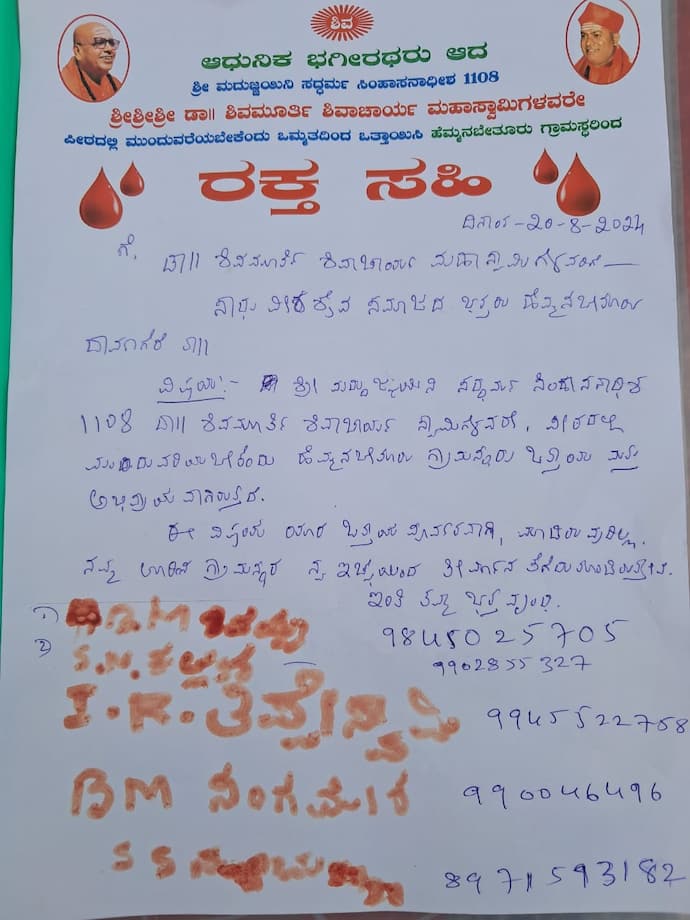 ಶಿವ
ಆಧುನಿಕ ಭಗೀರಥರು ಆದ
ಶ್ರೀ ಮದುಜ್ಜಯಿನಿ ಸದ್ಧರ್ಮ ಸಿಂಹಾಸನಾಧೀಶ 1108
ಶ್ರೀಶ್ರೀಶ್ರೀ ಡಾ|| ಶಿವಮೂರ್ತಿ ಶಿವಾಚಾರ್ಯ ಮಹಾಸ್ವಾಮಿಗಳವರೇ
ಪೀಠದಲ್ಲಿ ಮುಂದುವರೆಯಬೇಕೆಂದು ಒಮ್ಮತದಿಂದ ಒತ್ತಾಯಿಸಿ ಹೆಮ್ಮನಬೇತೂರು ಗ್ರಾಮಸ್ಥರಿಂದ
ರಕ್ತ ಸಹಿ
ದಿನಾಂಕ-20-8-2024
ಗೆ,
ಡಾ|| ಶಿವಮೂರ್ತಿ ಶಿವಾಚಾರ್ಯ ಮಹಾಸ್ವಾಮಿಗಳವರಿಗೆ
ಸಾಧು ವೀರಶೈವ ಸಮಾಜದ ಭಕ್ತರು ಹೆಮ್ಮನಬೇತೂರು
ದಾವಣಗೆರೆ ತಾ||
ವಿಷಯ:- ಶ್ರೀ ಮದುಜ್ಜಯಿನಿ ಸದ್ಧರ್ಮ ಸಿಂಹಾಸನಾಧೀಶ
1108 ಡಾ|| ಶಿವಮೂರ್ತಿ ಶಿವಾಚಾರ್ಯ ಸ್ವಾಮಿಗಳವರೇ, ಪೀಠದಲ್ಲಿ
ಮುಂದುವರಿಯಬೇಕೆಂದು ಹೆಮ್ಮನಬೇತೂರು ಗ್ರಾಮಸ್ಥರು ಒತ್ತಾಯ ಮತ್ತು
ಅಭಿಪ್ರಾಯವಾಗಿರುತ್ತದೆ.
ಈ ವಿಷಯ ಯಾರ ಒತ್ತಾಯ ಪೂರ್ವಕವಾಗಿ, ಮಾಡಿರುವುದಿಲ್ಲ.
ನಮ್ಮ ಊರಿನ ಗ್ರಾಮಸ್ಥರ ಸ್ವ ಇಚ್ಛೆಯಿಂದ ತೀರ್ಮಾನ ತೆಗೆದುಕೊಂಡಿರುತ್ತೇವೆ.
ಇಂತಿ ತಮ್ಮ ಭಕ್ತ ವೃಂದ.
1) B.M 9845025705
2) S.N. ಕಲ್ಲಪ್ಪ 9902855327
J.K. ತಿಪ್ಪೇಸ್ವಾಮಿ 9945522758
BM ಸಂಗಮೇಶ 990046496
S S 8971593182